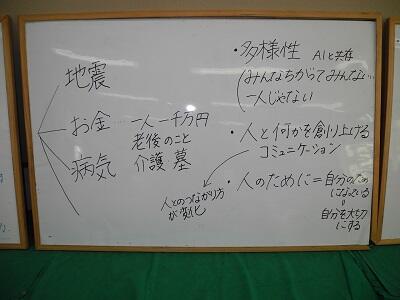 地震
お金 一人一千万円
老後のこと
病気 介護 墓
・多様性 AIと共存
(みんなちがってみんな…
一人じゃない
・人と何かを創り上げる
コミュニケーション
人とのつながり方
が変化
・人のために=自分のため
になっている
=
自分を大切
にする